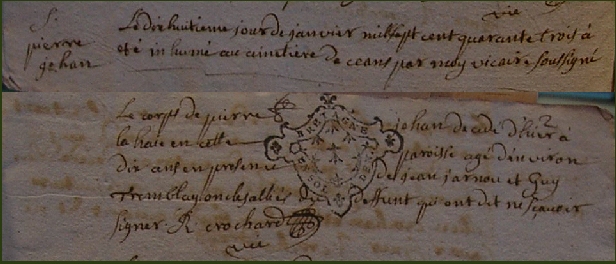 S.
pierre
johan
vic
Le dix huitieme jour de janvier mil sept cent quarante trois à
eté inhumé au cimetiere de ceans par moy vicaire soussigné
Le corps de pierre johan decedé d'hier à
la haie en cette paroisse agé d'environ
dix ans en presence de jean jarnou et Guy
Tremblay oncles du deffunt qui ont dit ne sçavoir
signer. R crochard
vic
BRETAGNE